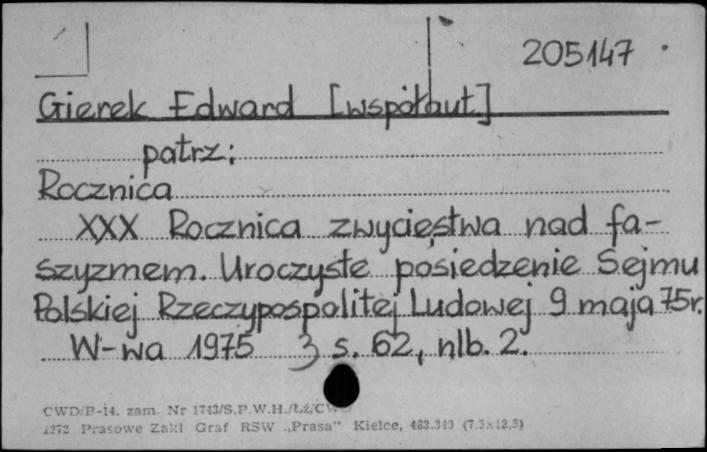 205147
Gierek Edward [współaut]
patrz:
Rocznica
XXX Rocznica zwycięstwa nad fa-
szyzmem. Uroczyste posiedzenie Sejmu
Polskiej Rzeczypospolitej Ludowej 9 maja 75r.
W-wa 1975 s. 62, nlb. 2.
CWD/P-14. zam. Nr 1743/S.P.W.H./ŁŹ/CWD
1272 Prasowe Zakł Graf RSW „Prasa" Kielce, 483.340 (7,5x12,5)